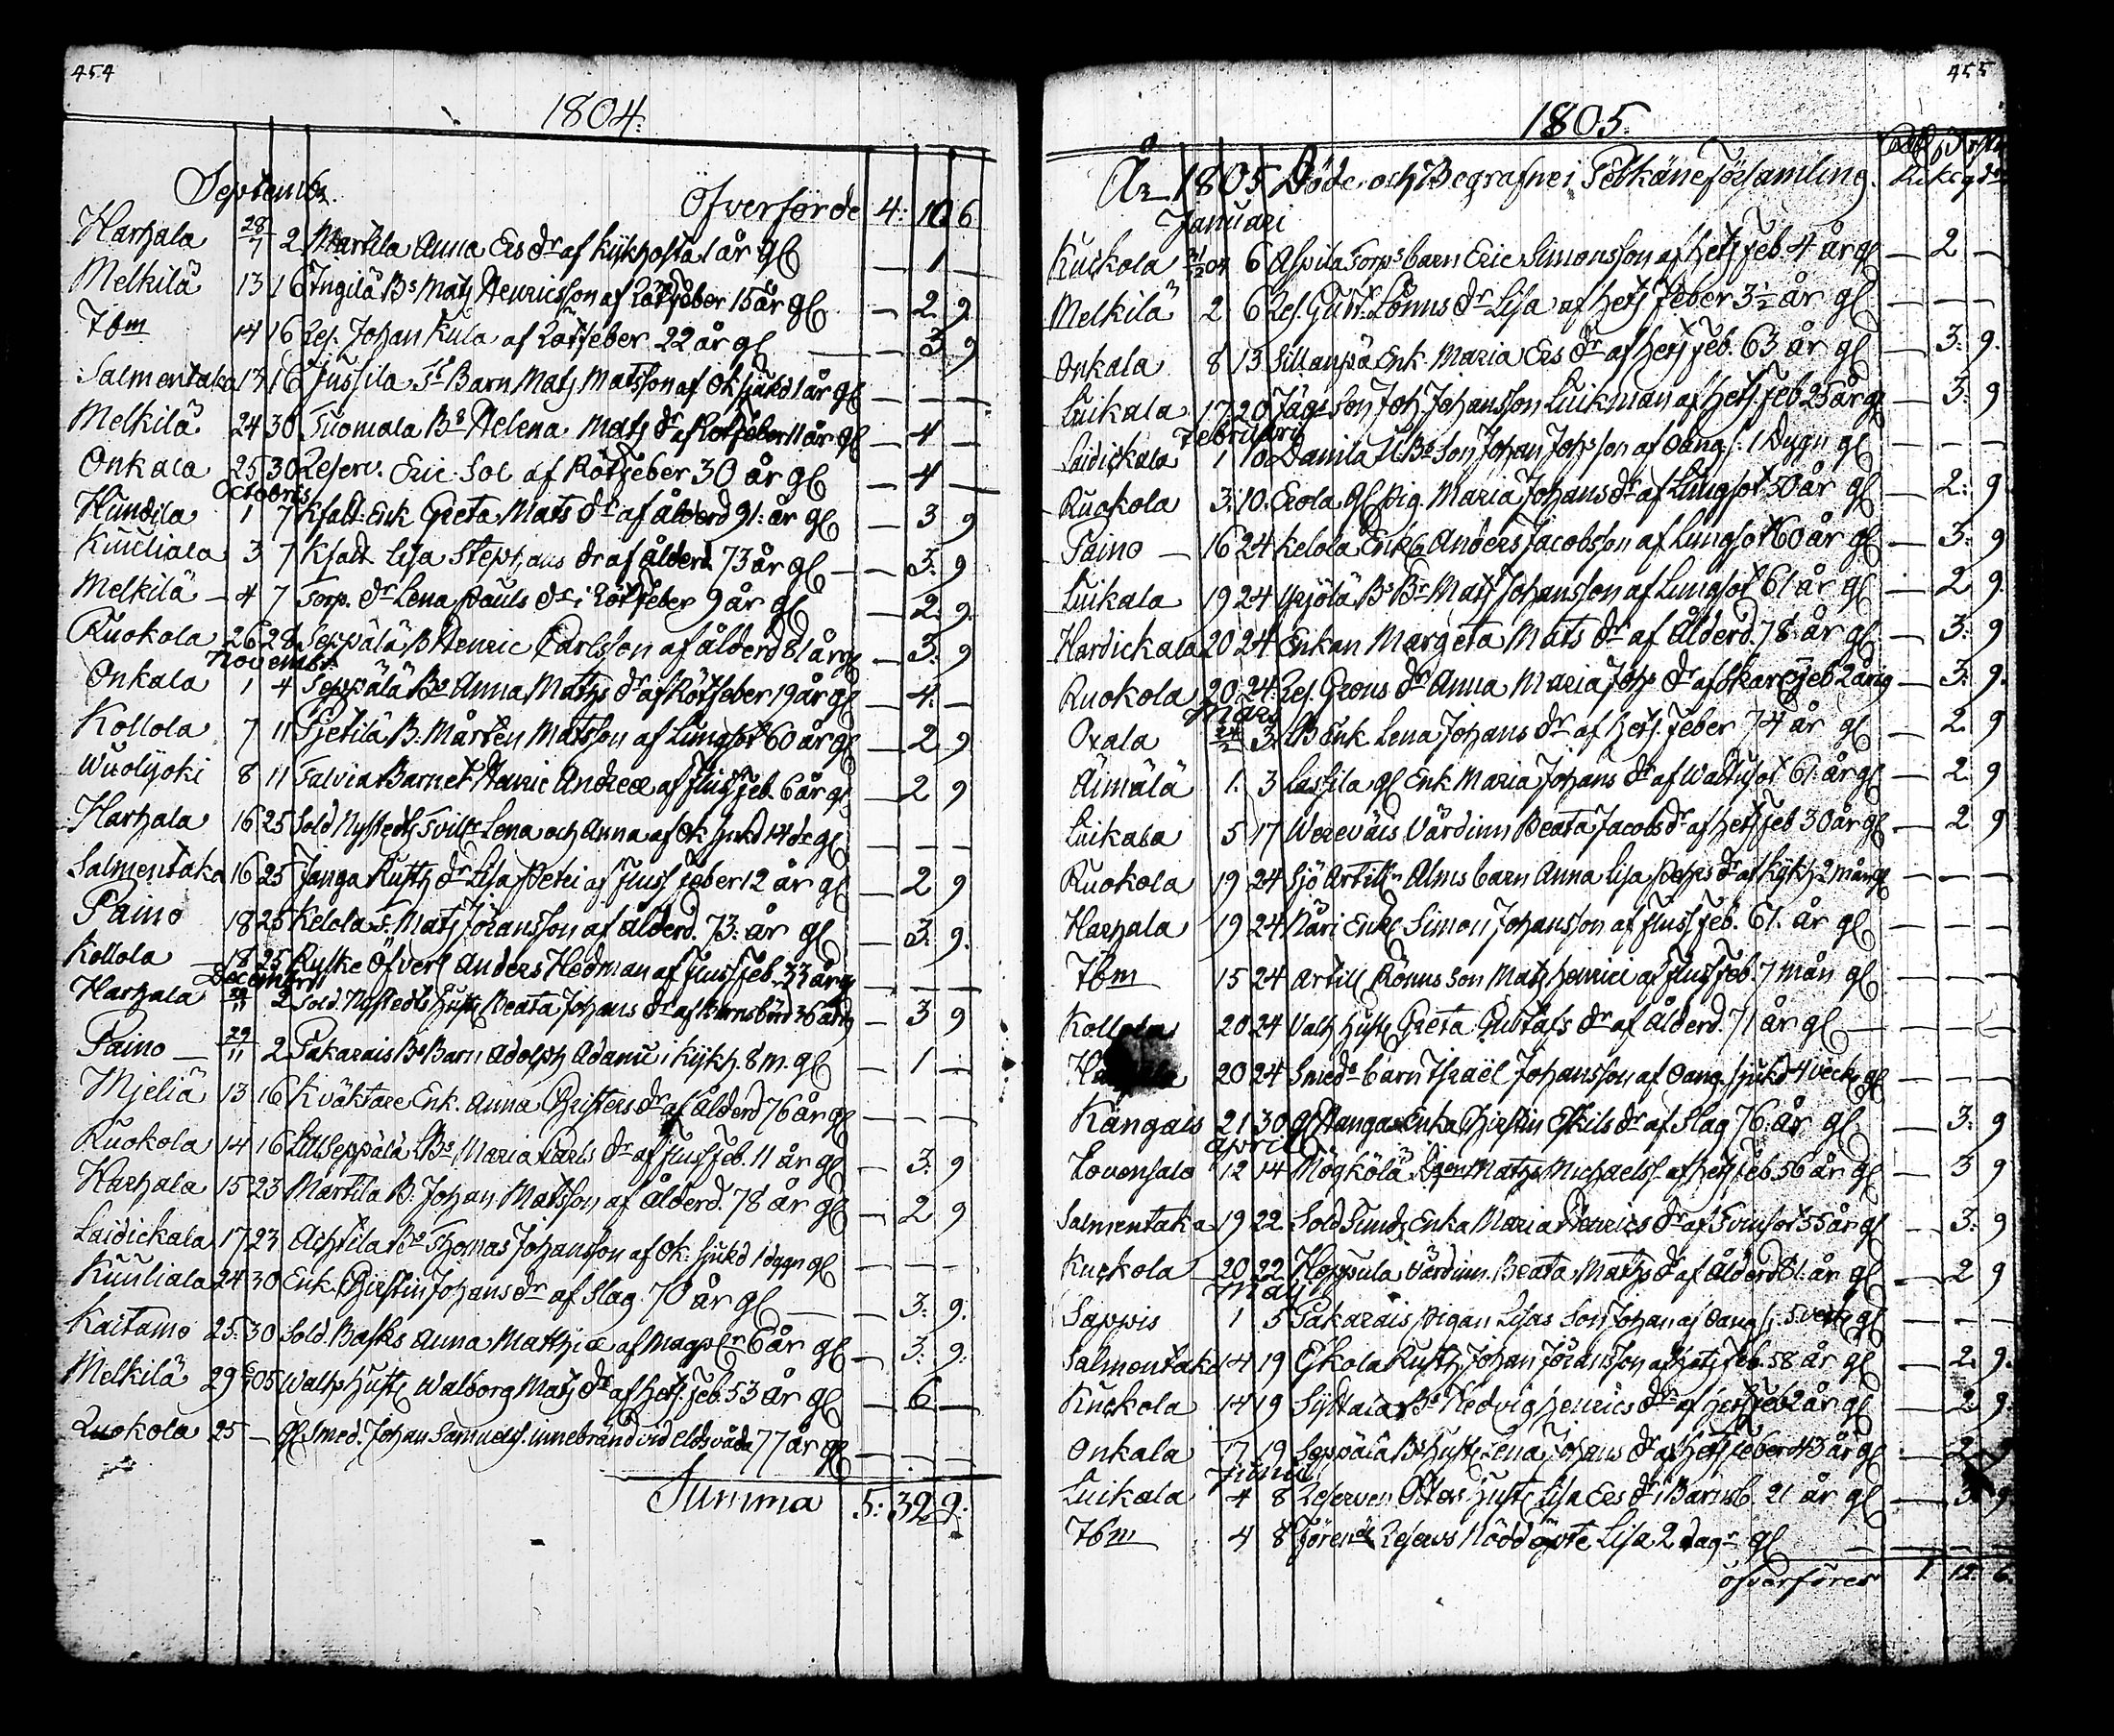 454
1804.
Septembr.
Öfverförde 4: 10 6
Harhala 28/7 2 Martila Anna Ers dr af kykhosta 1 år gl — 1 —
Melkilä 13 16 Ingilä Bs Mats Henricsson af Rötfeber 15 år gl — 2 9
Ibm 14 16 Res. Johan Kula af Rötfeber 22 år gl — 3 9
Salmentaka 13 16 Jussila Ts Barn Mats Matsson af Ok sjukd 1 år gl — — —
Melkilä 24 30 Tuomala Bs Helena Mats dr af Rötfeber 11 år gl — 4 —
Onkala 25 30 Reserv. Eric Sol af Rötfeber 30 år gl — 4 —
Octobris
Hundila 1 7 Kfald. Enk Greta Mats dr af ålderd 91: år gl — 3 9
Kuuliala 3 7 Kfald Lisa Stephans dr af ålderd. 73 år gl — 3. 9
Melkilä — 4 7 Torp. dr Lena Pauls dr i Rötfeber 9 år gl — 2. 9.
Ruokola 26 28 Seppälä B Henric Carlsson af ålderd 81 år gl — 3. 9
Novembr.
Onkala 1 4 Seppälä Bs Anna Mats dr af Rötfeber 19 år gl — 4. —
Kollola 7 11 Pjetilä B. Mårten Matsson af Lungsot 60 år gl — 2 9
Wuolijoki 8 11 Talvia Barnet Henric Andreæ af Flussfeb. 6 år gl — 2 9
Harhala 16 25 Sold Nystedts Tvill. Lena och Anna af Ok sjukd 14 d gl — — —
Salmentaka 16 25 Janga Rusth dr Lisa Petri af Flussfeber 12 år gl — 2 9
Paino 18 25 Kelola Ts. Mats Jöransson af ålderd. 73: år gl — 3. 9.
Kollola — 18 25 Ryske Öfverl Anders Hedman af Flussfeb. 33 år gl — — —
Decembris
Harhala 29/11 2 Sold. Nystedts Hust Beata Johans dr af Barnsbörd 36 år gl — 3 9
Paino — 29/11 2 Pakarais Bs Barn Adolph Adami i Kykh. 8 m. gl — 1 —
Mjeliä 13 16 Kväktare Enk. Anna Christers dr af Ålderd 76 år gl — — —
Ruokola 14 16 Seppälä Bs Maria Carls dr af Flussfeb. 11 år gl — 3. 9
Harhala 15 23 Martila B. Johan Matsson af Ålderd. 78 år gl — 2 9
Laidickala 17 23 Achtila Bs Thomas Johansson af Ok: sjukd 1 dygn gl — — —
Kuuliala 24 30 Enk. Christin Johans dr af Slag. 70 år gl — 3. 9.
Kaitamo 25. 30 Sold. Basks Anna Matthiæ af Magpl 6 år gl — 3. 9.
Melkilä 29 05 Walhs Hust Walborg Mats dr af Hets. feb. 53 år gl — 6 —
Ruokola 25 — Gl Smed. Johan Samuelss. innebränd vid Eldsvåda 77 år gl — — —
Summa 5: 32 9.
455
1805.
År 1805 Döde och Begrafne i Pelkäne Församling. Riksgds
Januari
Kuckola 04 6 Aspila Torps barn Eric Simonsson af Hets feb. 4 år gl — 2 —
Melkilä 2 6 Res. Gust. Lönns dr Lisa af Hets feber 3½ år gl — — —
Onkala 8 13 Sillanpä Enk. Maria Ers dr af Hets feb. 63 år gl — 3. 9.
Luikala 17 20 Jägs Son Joh. Johansson Luikman af Hets. feb 25 år gl — 3. 9
Februarii
Laidickala 1 10 Danila Bs Son Johan Johsson af Oang sj. 1 Dygn gl — — —
Ruokola 3. 10. Erola gl pig. Maria Johans dr af Lungsot 50 år gl — 2. 9
Paino — 16 24 Kelola Enkl Anders Jacobsson af Lungsot 60 år gl — 3. 9
Luikala 19 24 Yrjölä Bs Br Mats Johansson af Lungsot 61 år gl — 2 9.
Hardickala 20 24 Enkan Margeta Mats dr af Ålderd. 78 år gl — 3. 9
Ruokola 20 24 Res. Grous dr Anna Maria Johs dr af Skarlfeb 2 år gl — 3. 9.
Mars
Oxala 3. B Enk Lena Johans dr af Hets. feber 74 år gl — 2 9
Äimälä 1. 3 Lassila gl Enk Maria Johans dr af Wattusot 61. år gl — 2. 9
Luikala 5 17 Wereväis Värdinn Beata Jacobs dr af Hets feb 30 år gl — 2 9
Ruokola 19 24 Sjö Artillm Alms barn Anna Lisa Pehrs dr af Kykh 2 mån gl — — —
Harhala 19 24 Näri Enkl Simon Johansson af Flussfeb. 61. år gl — — —
Ibm 15 24 Artill Rönns Son Mats Henrici af Flussfeb. 7 mån gl — — —
Kollola 20 24 Valh Hust Greta Gustafs dr af Ålderd. 71 år gl — — —
20 24 Smeds barn Israël Johansson af Oang. sjukd 4 veck gl — — —
Kångais 21 30 Gl Enka Christin Eskils dr af Slag 76 år gl — 3. 9
April
Lovensalo 12 14 Mögkölä Mats Michaelss. af Hets feb. 56 år gl — 3 9
Salmentaka 19 22 Sold Sunds Enka Maria Henrics dr af Tvinsot 55 år gl — 3. 9
Kuckola 20 22 Hoppula Värdinn. Beata Mats dr af Ålderd 81. år gl — 2 9
Maij
Sappis 1 5 Pakarais pigan Lisas Son Johan af Oang sj. 5 veck gl — — —
Salmentaka 14 19 Eskola Rusth Johan Jöransson af Hets feb. 58 år gl — 2. 9.
Kuckola 14 19 Syltala Bs Hedvig Henrics dr af Hets feb 2 år gl — 2. 9.
Onkala 17 19 Seppälä Bs Hust Lena Johans dr af Hets feber 43 år gl — 2. 9
Junii
Luikala 4 8 Reserven Hust Lisa Ers dr i Barnsb. 21 år gl — 3. 9
Ibm 4 8 Förende Reservs Nöddöpte Lisa 2 dagr gl — — —
öfverföres 1. 12. 6.